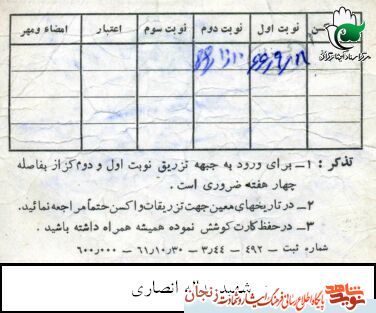 کسن نوبت اول نوبت دوم نوبت سوم اعتبار امضاء ومهر
تذکر : ۱ــ برای ورود به جبهه تزریق نوبت اول و دوم کزاز بفاصله
چهار هفته ضروری است .
۲ــ در تاریخهای معین جهت تزریقات واکسن حتماً مراجعه نمائید.
۳ــ در حفظ کارت کوشش نموده همیشه همراه داشته باشید .
شماره ثبت ــ ۴۹۲ ــ ۳٫۴۴ ــ ۶۱٫۱۰٫۳۰ ــ ۶۰۰٫۰۰۰
شهید انصاری
نوید شاهد پایگاه اطلاع رسانی فرهنگ ایثار و شهادت زنجان